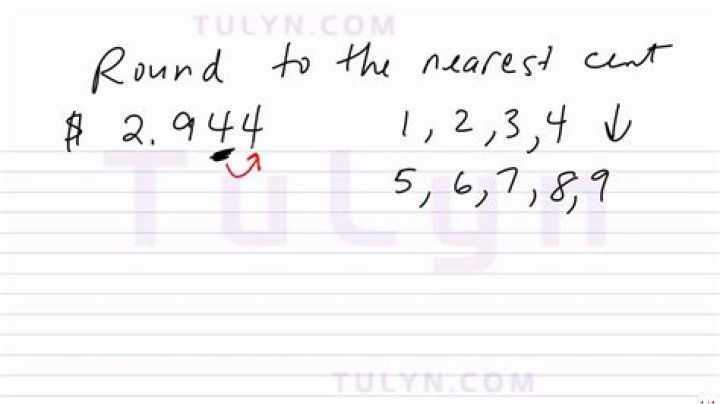 TULYN.COM
Round to the nearest cent
$ 2.944 1, 2, 3, 4 ↓
5, 6, 7, 8, 9
TuLyn
TULYN.COM